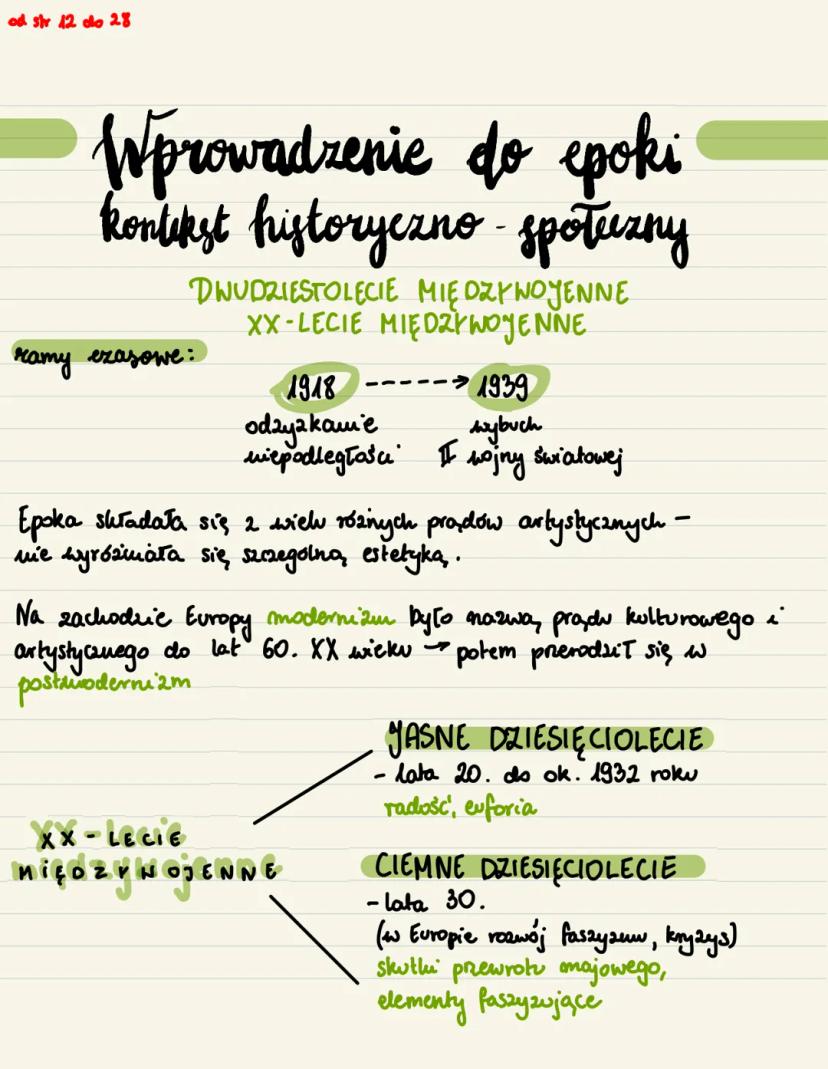 od str 12 do 28
Wprowadzenie do epoki
kontekst historyczno - społeczny
DWUDZIESTOLECIE MIĘDZYWOJENNE
XX-LECIE MIĘDZYWOJENNE
ramy czasowe:
1918 -----→ 1939
odzyskanie wybuch
niepodległości II wojny światowej
Epoka składała się z wielu różnych prądów artystycznych –
nie wyróżniała się szczególną estetyką.
Na zachodzie Europy modernizm było nazwą prądu kulturowego i
artystycznego do lat 60. XX wieku → potem przerodził się w
postmodernizm
JASNE DZIESIĘCIOLECIE
- lata 20. do ok. 1932 roku
radość, euforia
XX-LECIE
MIĘDZYWOJENNE
CIEMNE DZIESIĘCIOLECIE
- lata 30.
(w Europie rozwój faszyzmu, kryzys)
skutki przewrotu majowego,
elementy faszyzujące